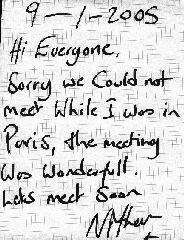 9-1-2005
Hi Everyone,
Sorry we Could not
meet While I was in
Paris, the meeting
Was Wonderfull.
Lets meet Soon